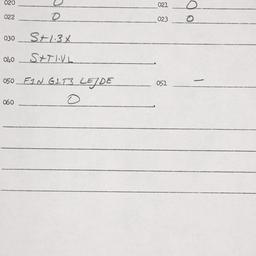 020 0 021 0
022 0 023 0
030 S+1.3X
040 S+T1.VL
050 FIN GLT3 LE/DE 051 -
060 0